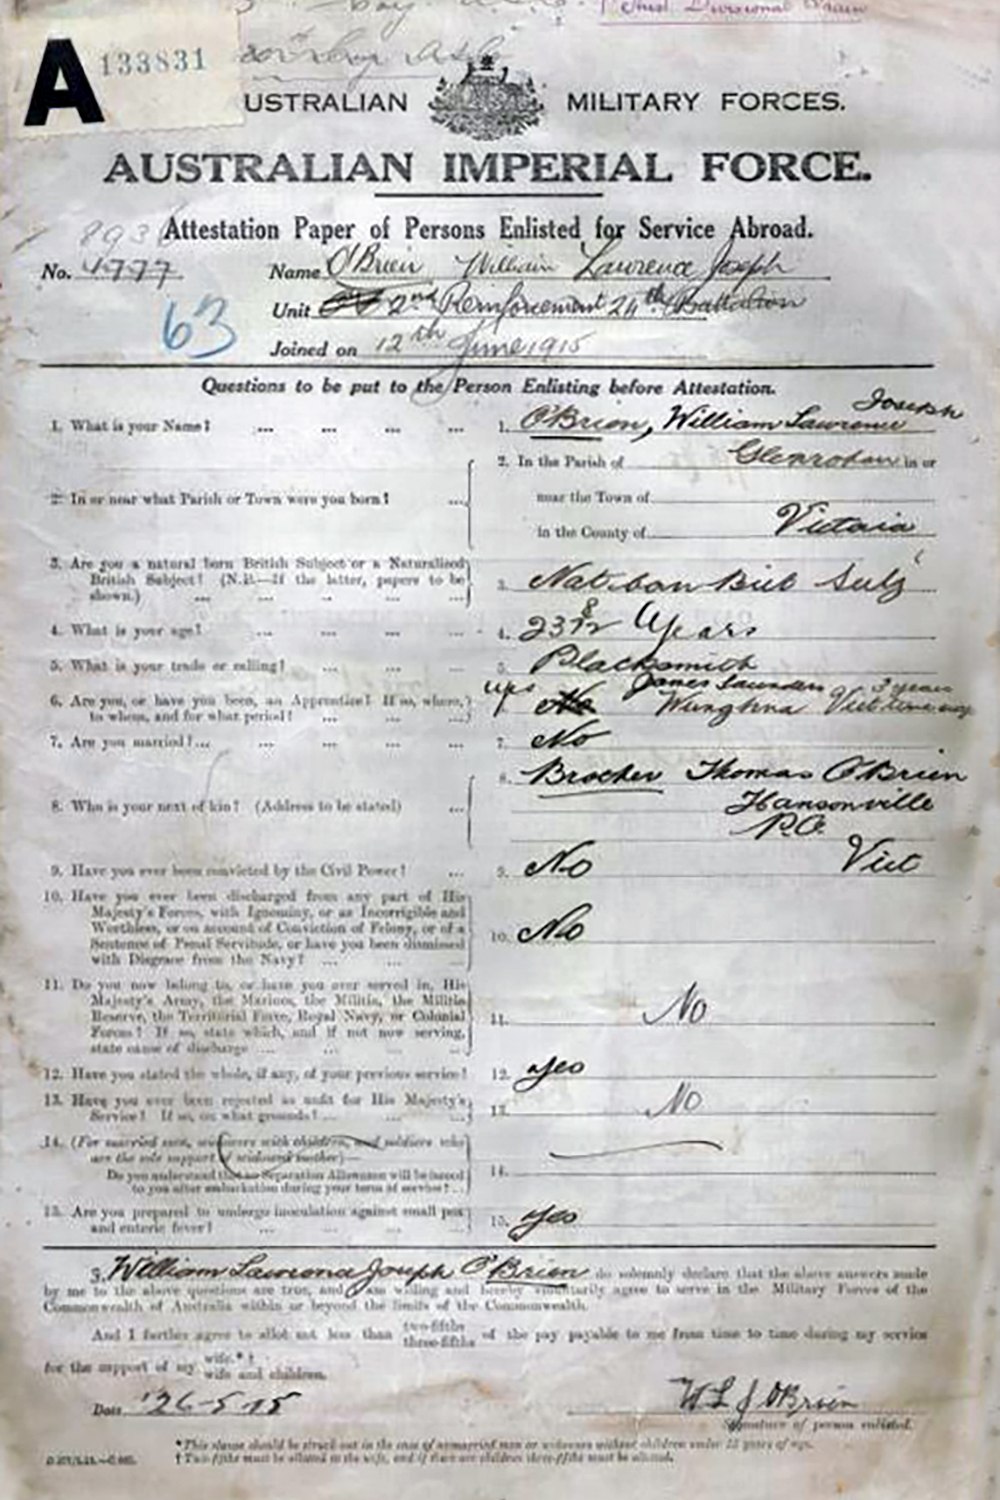 1st Divisional Train
A 133831
AUSTRALIAN MILITARY FORCES.
AUSTRALIAN IMPERIAL FORCE.
Attestation Paper of Persons Enlisted for Service Abroad.
No. 4777 Name O'Brien William Lawrence Joseph
63 Unit 2nd Reinforcement 24th Battalion
Joined on 12th June 1915
Questions to be put to the Person Enlisting before Attestation.
1. What is your Name? ... ... ... ... 1. O'Brien, William Lawrence Joseph
2. In or near what Parish or Town were you born? ... 2. In the Parish of Glenrowan in or
near the Town of
in the County of Victoria
3. Are you a natural born British Subject or a Naturalised
British Subject? (N.B.—If the latter, papers to be
shown.) ... ... ... ... 3. Nat. born Brit Subj
4. What is your age? ... ... ... ... 4. 23 8/12 Years
5. What is your trade or calling? ... ... ... 5. Blacksmith
6. Are you, or have you been, an Apprentice? If so, where,
to whom, and for what period? ... ... ... 6. yes No James Saunders 3 years
Wunghnu Vict time
7. Are you married? ... ... ... ... 7. No
8. Who is your next of kin? (Address to be stated) ... 8. Brother Thomas O'Brien
Hansonville
P.O.
Vict
9. Have you ever been convicted by the Civil Power? ... 9. No
10. Have you ever been discharged from any part of His
Majesty's Forces, with Ignominy, or as Incorrigible and
Worthless, or on account of Conviction of Felony, or of a
Sentence of Penal Servitude, or have you been dismissed
with Disgrace from the Navy? ... ... ... 10. No
11. Do you now belong to, or have you ever served in, His
Majesty's Army, the Marines, the Militia, the Militia
Reserve, the Territorial Force, Royal Navy, or Colonial
Forces? If so, state which, and if not now serving,
state cause of discharge ... ... ... ... 11. No
12. Have you stated the whole, if any, of your previous service? 12. yes
13. Have you ever been rejected as unfit for His Majesty's
Service? If so, on what grounds? ... ... ... 13. No
14. (For married men, widowers with children, and soldiers who
are the sole support of widowed mother)—
Do you understand that no Separation Allowance will be issued
to you after embarkation during your term of service? ... 14.
15. Are you prepared to undergo inoculation against small pox
and enteric fever? ... ... ... ... 15. yes
I, William Lawrence Joseph O'Brien do solemnly declare that the above answers made
by me to the above questions are true, and I am willing and hereby voluntarily agree to serve in the Military Forces of the
Commonwealth of Australia within or beyond the limits of the Commonwealth.
And I further agree to allot not less than two-fifths three-fifths of the pay payable to me from time to time during my service
for the support of my wife.*† wife and children.
Date 26-5-15 W L J O'Brien
Signature of person enlisted.
*This clause should be struck out in the case of unmarried men or widowers without children under 18 years of age.
†Two-fifths must be allotted to the wife, and if there are children three-fifths must be allotted.